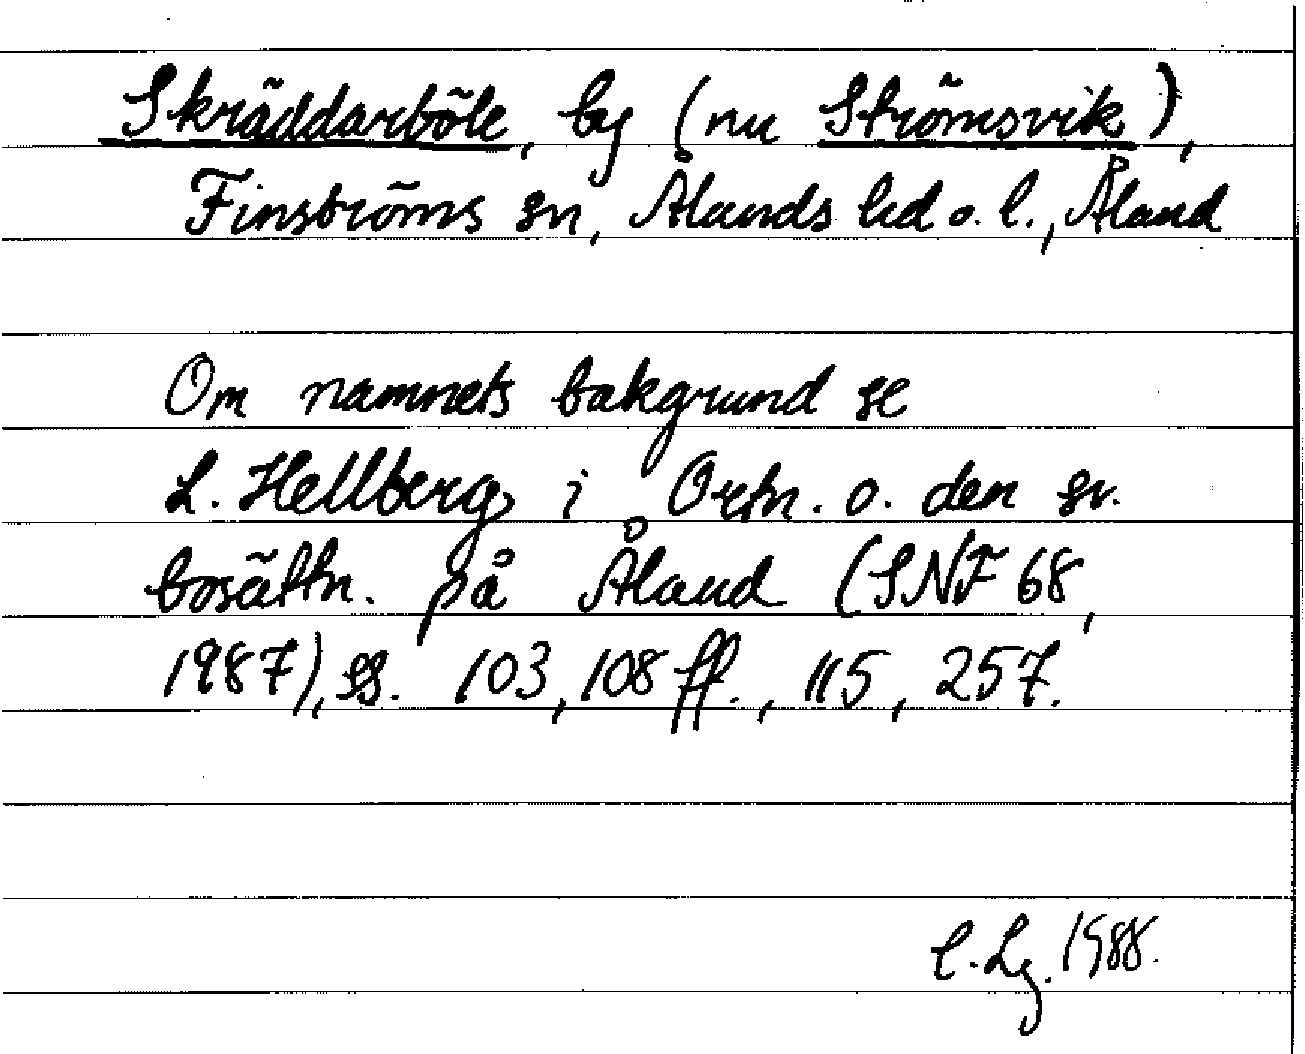 Skräddarböle, by (nu Strömsvik),
Finströms sn, Ålands hd o. l., Åland
Om namnets bakgrund se
L. Hellberg i Ortn. o. den sv.
bosättn. på Åland (SNF 68,
1987), ss. 103, 108 ff., 115, 257.
C. Lg. 1988.